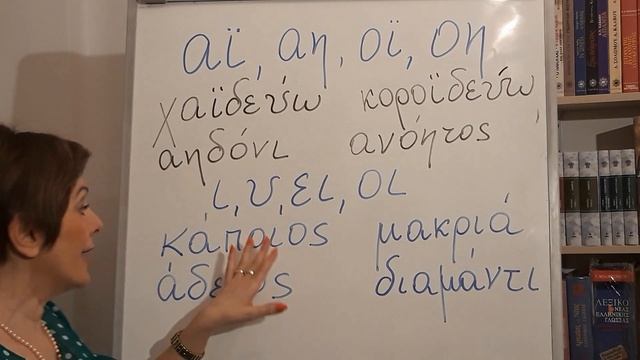 αϊ, αη, οϊ, οη
χαϊδεύω κοροϊδεύω
αηδόνι ανόητος
ι, υ, ει, οι
κάποιος μακριά
διαμάντι
ΛΕΞΙΚΟ
ΝΕΑΣ
ΕΛΛΗΝΙΚΗΣ
ΓΛΩΣΣΑΣ